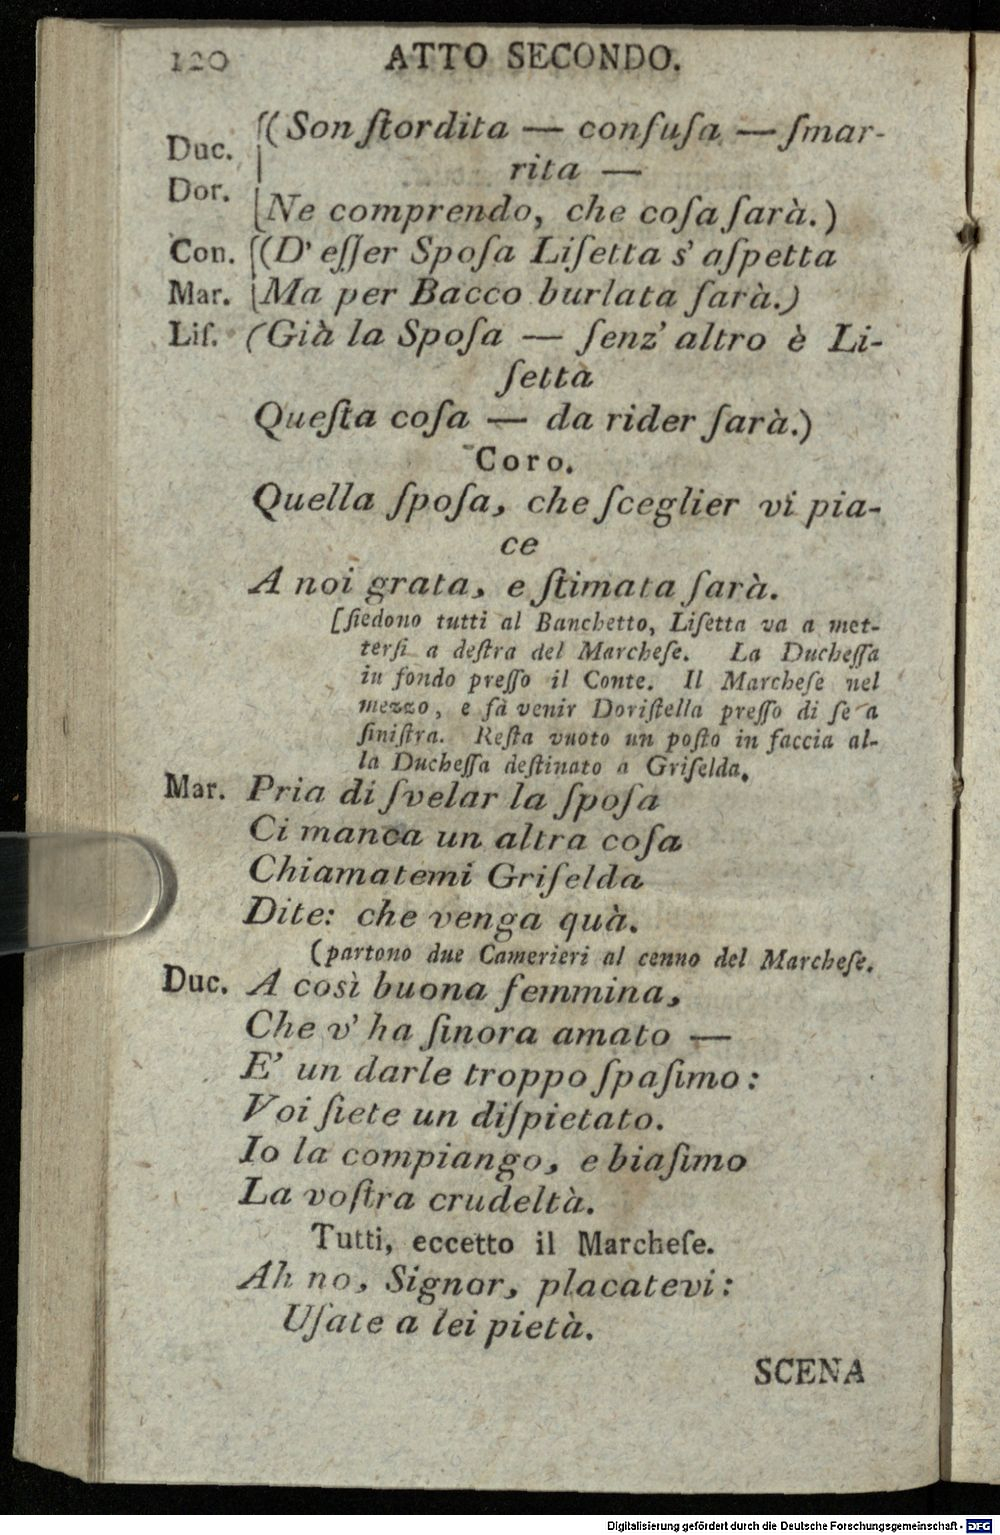 120 ATTO SECONDO.
Duc. ((Son ſtordita — confuſa — ſmar-
rita —
Dor. Ne comprendo, che coſa ſarà.)
Con. (D' eſſer Spoſa Liſetta s' aſpetta
Mar. Ma per Bacco burlata ſarà.)
Liſ. (Già la Spoſa — ſenz' altro è Li-
ſetta
Queſta coſa — da rider ſarà.)
Coro.
Quella ſpoſa, che ſceglier vi pia-
ce
A noi grata, e ſtimata ſarà.
[ſiedono tutti al Banchetto, Liſetta va a met-
terſi a deſtra del Marcheſe. La Ducheſſa
in fondo preſſo il Conte. Il Marcheſe nel
mezzo, e fà venir Doriſtella preſſo di ſe a
ſiniſtra. Reſta vuoto un poſto in faccia al-
la Ducheſſa deſtinato a Griſelda.
Mar. Pria di ſvelar la ſpoſa
Ci manca un altra coſa
Chiamatemi Griſelda
Dite: che venga quà.
(partono due Camerieri al cenno del Marcheſe.
Duc. A così buona femmina,
Che v' ha ſinora amato —
E' un darle troppo ſpaſimo:
Voi ſiete un diſpietato.
Io la compiango, e biaſimo
La voſtra crudeltà.
Tutti, eccetto il Marcheſe.
Ah no, Signor, placatevi:
Uſate a lei pietà.
SCENA
Digitalisierung gefördert durch die Deutsche Forschungsgemeinschaft - DFG